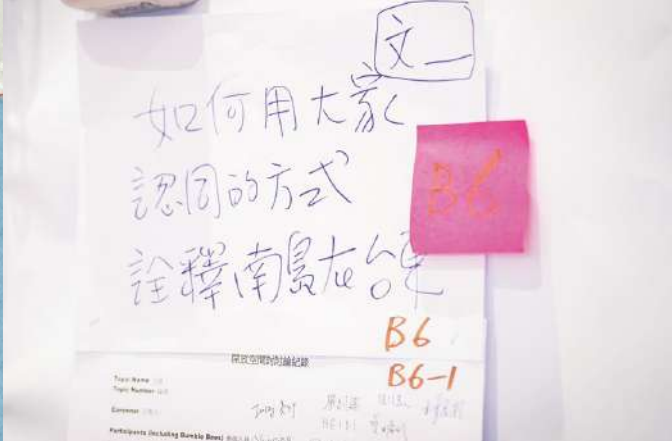 文一
如何用大家
認同的方式
詮釋南島在台東
B6
B6
B6-1
開放空間討論紀錄
Topic Name
Topic Number
Convener
Participants (including Bumble Bees)